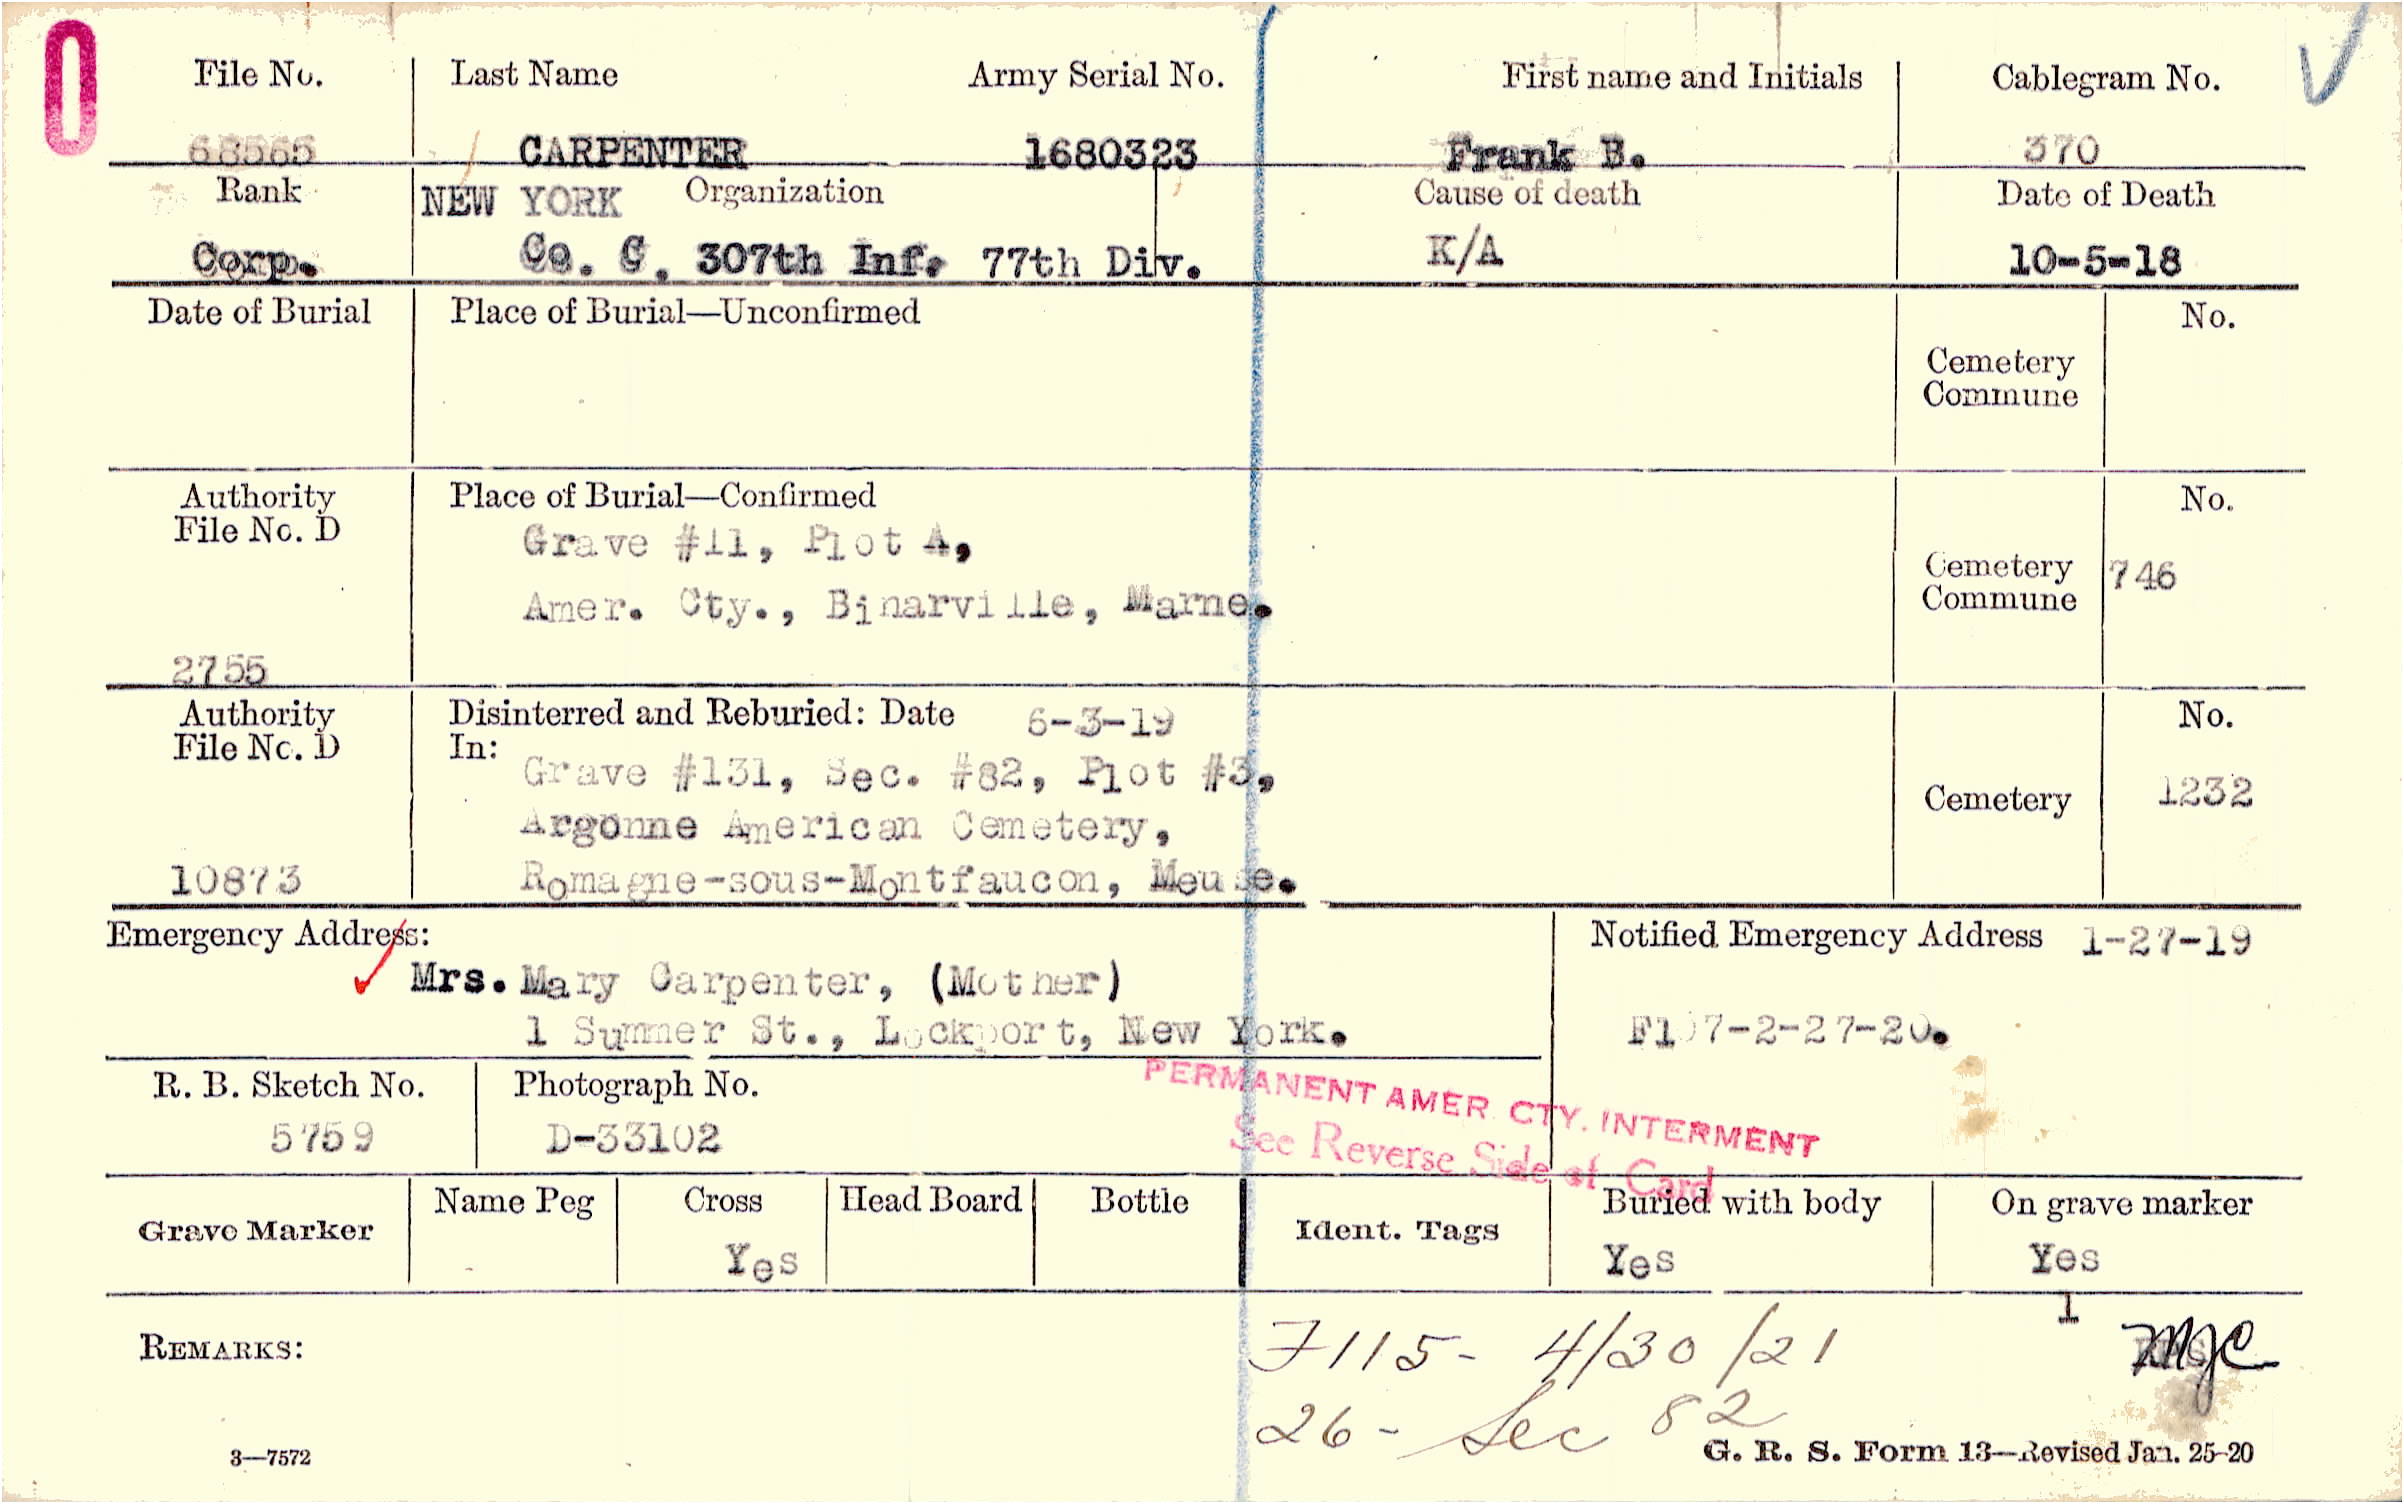 0
File No. Last Name Army Serial No. First name and Initials Cablegram No.
68565 CARPENTER 1680323 Frank B. 370
Rank NEW YORK Organization Cause of death Date of Death
Corp. Co. G. 307th Inf. 77th Div. K/A 10-5-18
Date of Burial Place of Burial—Unconfirmed No.
Cemetery
Commune
Authority Place of Burial—Confirmed No.
File No. D Grave #11, Plot A,
Cemetery 746
Commune
Amer. Cty., Binarville, Marne.
2755
Authority Disinterred and Reburied: Date 6-3-19 No.
File No. D In:
Grave #131, Sec. #82, Plot #3,
Cemetery 1232
Argonne American Cemetery,
10873 Romagne-sous-Montfaucon, Meuse.
Emergency Address: Notified Emergency Address 1-27-19
Mrs. Mary Carpenter, (Mother)
1 Summer St., Lockport, New York. F107-2-27-20.
R. B. Sketch No. Photograph No.
PERMANENT AMER. CTY. INTERMENT
5759 D-33102
See Reverse Side of Card
Grave Marker Name Peg Cross Head Board Bottle Ident. Tags Buried with body On grave marker
Yes Yes Yes
1
REMARKS: F115- 4/30/21 MJC
26- Sec 82
3—7572 G. R. S. Form 13—Revised Jan. 25-20